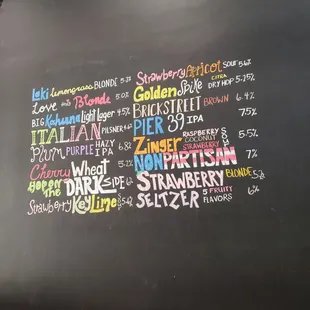 Laki lemongrass BLONDE 5.2
Love and Blonde 5.0%
BIG Kahuna Light Lager 4.5%
ITALIAN PILSNER
Plum PURPLE HAZY IPA 6.8%
Cherry Wheat 5.2%
HOP ON THE DARK SIDE
Strawberry Key Lime SOUR
Strawberry Apricot SOUR 5.6%
Golden Spike CITRA DRY HOP 5.25%
BRICKSTREET BROWN 6.4%
PIER 39 IPA 7.5%
Zinger RASPBERRY COCONUT STRAWBERRY SOUR 5.5%
NONPARTISAN 7%
STRAWBERRY BLONDE
SELTZER 5 FRUITY FLAVORS 6%